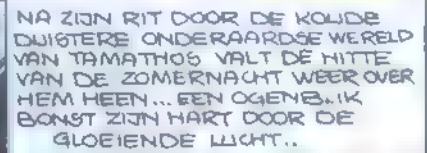 NA ZIJN RIT DOOR DE KOUDE
DUISTERE ONDERAARDSE WERELD
VAN TAMATHOS VALT DE HITTE
VAN DE ZOMERNACHT WEER OVER
HEM HEEN... EEN OGENBLIK
BONST ZIJN HART DOOR DE
GLOEIENDE LUCHT..